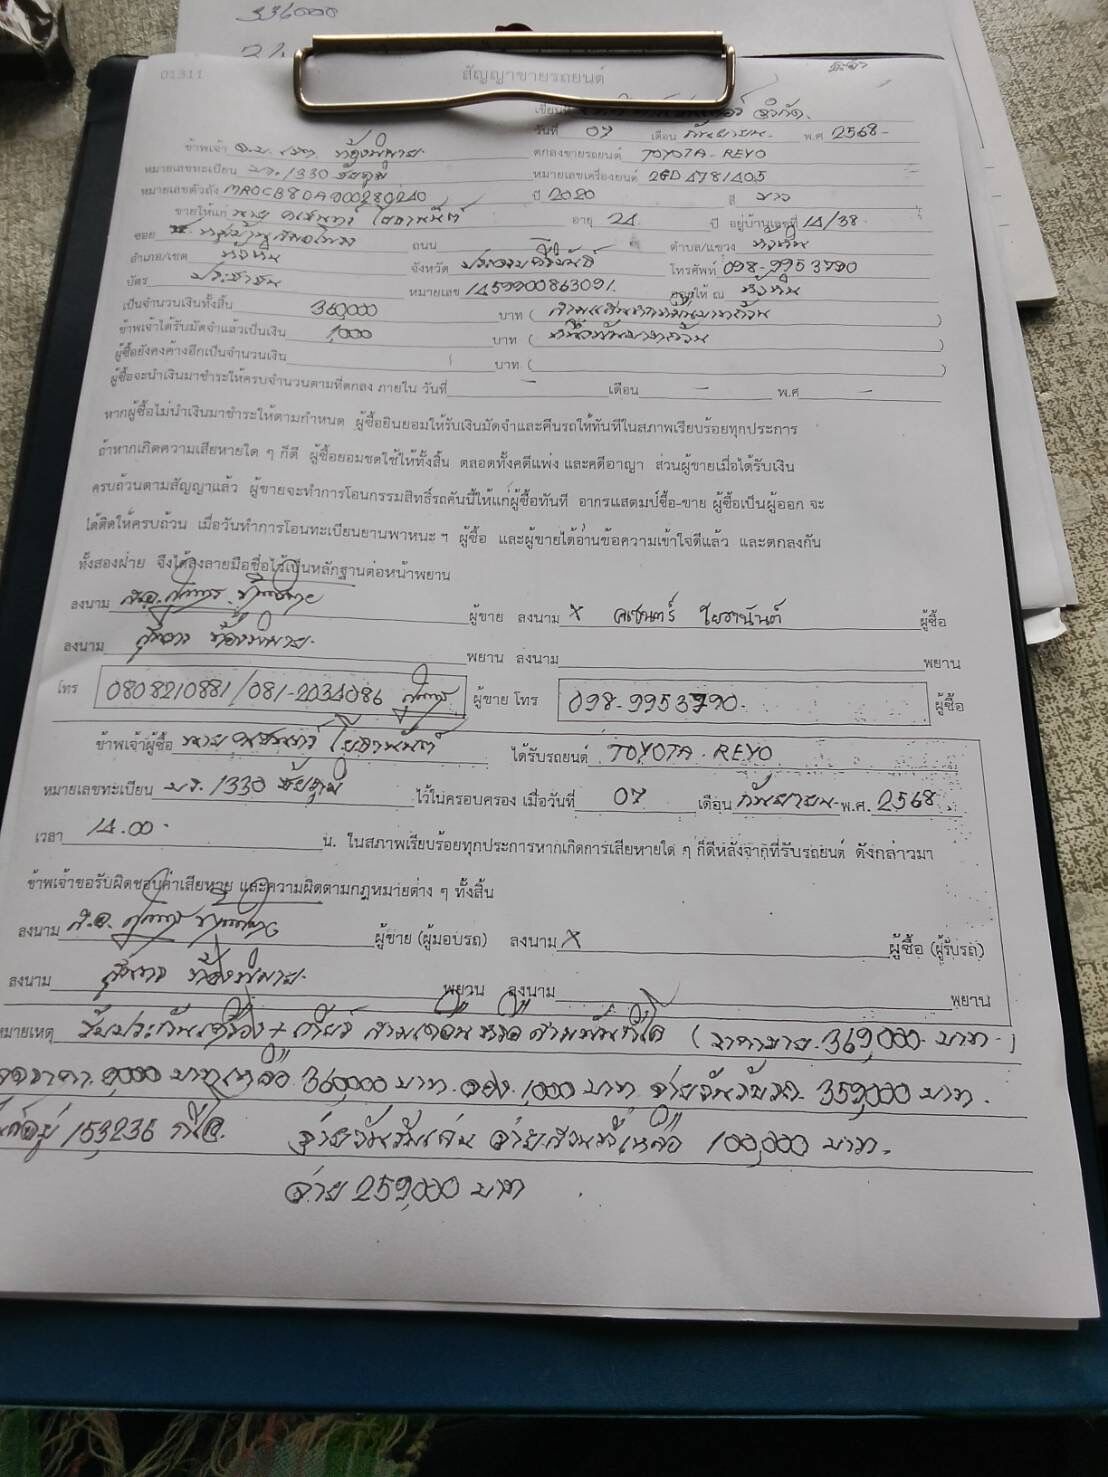 336000
01311
สัญญาขายรถยนต์
เขียนที่ จำกัด.
วันที่ 07 เดือน กันยายน. พ.ศ 2568-
ข้าพเจ้า ตกลงขายรถยนต์ TOYOTA - REYO
หมายเลขทะเบียน 1330 ชัยภูมิ หมายเลขเครื่องยนต์ 2GD4781405
หมายเลขตัวถัง MR0CB8DA900280240 ปี 2020 สี ขาว
ขายให้แก่ นาย คเชนทร์ ไชยานันต์ อายุ 24 ปี อยู่บ้านเลขที่ 14/38-
ซอย ถนน ตำบล/แขวง หัวหิน
อำเภอ/เขต หัวหิน จังหวัด ประจวบคีรีขันธ์ โทรศัพท์ 098-9953790
บัตร ประชาชน หมายเลข 1459900863091. ออกให้ ณ หัวหิน
เป็นจำนวนเงินทั้งสิ้น 360,000 บาท ( สามแสนหกหมื่นบาทถ้วน )
ข้าพเจ้าได้รับมัดจำแล้วเป็นเงิน 1,000 บาท ( หนึ่งพันบาทถ้วน )
ผู้ซื้อยังคงค้างอีกเป็นจำนวนเงิน บาท ( )
ผู้ซื้อจะนำเงินมาชำระให้ครบจำนวนตามที่ตกลง ภายใน วันที่ - เดือน - พ.ศ -
หากผู้ซื้อไม่นำเงินมาชำระให้ตามกำหนด ผู้ซื้อยินยอมให้รับเงินมัดจำและคืนรถให้ทันทีในสภาพเรียบร้อยทุกประการ
ถ้าหากเกิดความเสียหายใด ๆ ก็ดี ผู้ซื้อยอมชดใช้ให้ทั้งสิ้น ตลอดทั้งคดีแพ่ง และคดีอาญา ส่วนผู้ขายเมื่อได้รับเงิน
ครบถ้วนตามสัญญาแล้ว ผู้ขายจะทำการโอนกรรมสิทธิ์รถคันนี้ให้แก่ผู้ซื้อทันที อากรแสตมป์ซื้อ-ขาย ผู้ซื้อเป็นผู้ออก จะ
ได้ติดให้ครบถ้วน เมื่อวันทำการโอนทะเบียนยานพาหนะ ฯ ผู้ซื้อ และผู้ขายได้อ่านข้อความเข้าใจดีแล้ว และตกลงกัน
ทั้งสองฝ่าย จึงได้ลงลายมือชื่อไว้เป็นหลักฐานต่อหน้าพยาน
ลงนาม ผู้ขาย ลงนาม x คเชนทร์ ไชยานันต์ ผู้ซื้อ
ลงนาม พยาน ลงนาม พยาน
โทร 0808210881/081-2034086 ผู้ขาย โทร 098-9953790- ผู้ซื้อ
ข้าพเจ้าผู้ซื้อ นาย คเชนทร์ ไชยานันต์ ได้รับรถยนต์ TOYOTA - REYO
หมายเลขทะเบียน 1330 ชัยภูมิ ไว้ในครอบครอง เมื่อวันที่ 07 เดือน กันยายน พ.ศ. 2568
เวลา 14.00- น. ในสภาพเรียบร้อยทุกประการหากเกิดการเสียหายใด ๆ ก็ดีหลังจากที่รับรถยนต์ ดังกล่าวมา
ข้าพเจ้าขอรับผิดชอบค่าเสียหาย และความผิดตามกฎหมายต่าง ๆ ทั้งสิ้น
ลงนาม ผู้ขาย (ผู้มอบรถ) ลงนาม X ผู้ซื้อ (ผู้รับรถ)
ลงนาม พยาน ลงนาม พยาน
หมายเหตุ รับประกันเครื่อง + เกียร์ สามเดือน หรือสามพันกิโล ( ราคาขาย 369,000 บาท - )
ลดราคา 9000 บาท เหลือ 360000 บาท. จอง 1,000 บาท จ่ายวันรับรถ 359000 บาท.
153236 กิโล. จ่ายส่วนที่เหลือ 100,000 บาท.
จ่าย 259,000 บาท